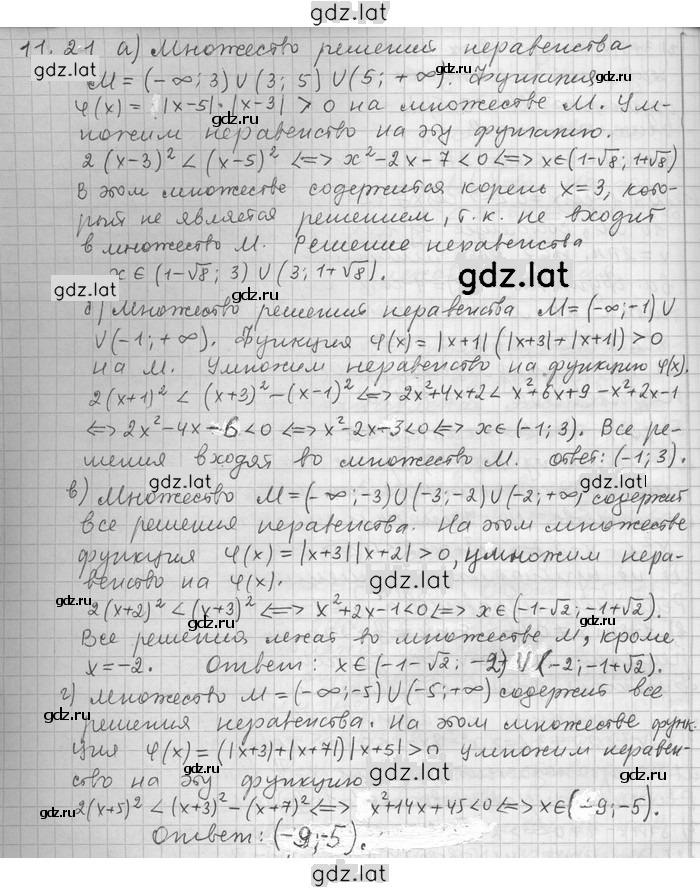 gdz.lat
11.21 а) Множество решений неравенства
M = (-∞; 3) ∪ (3; 5) ∪ (5; +∞). Функция
gdz.lat
gdz.lat
φ(x) = |x-5|·|x-3| > 0 на множестве M. Ум-
gdz.lat
gdz.lat
ножим неравенство на эту функцию.
gdz.lat
2(x-3)² < (x-5)² <=> x²-2x-7<0 <=> x∈(1-√8; 1+√8)
В этом множестве содержится корень x=3, кото-
рый не является решением, т.к. не входит
gdz.lat
в множество M. Решение неравенства
x∈(1-√8; 3) ∪ (3; 1+√8).
gdz.lat
gdz.lat
б) Множество решений неравенства M=(-∞;-1)∪
gdz.lat
∪(-1; +∞). Функция φ(x)=|x+1|(|x+3|+|x+1|)>0
gdz.lat
на M. Умножим неравенство на функцию φ(x).
gdz.lat
2(x+1)² < (x+3)²-(x-1)² <=> 2x²+4x+2 < x²+6x+9-x²+2x-1
<=> 2x²-4x-6<0 <=> x²-2x-3<0 <=> x∈(-1; 3). Все ре-
gdz.lat
шения входят во множество M. ответ: (-1; 3).
gdz.lat
gdz.lat
в) Множество M=(-∞;-3)∪(-3;-2)∪(-2;+∞) содержит
gdz.lat
все решения неравенства. На этом множестве
функция φ(x)=|x+3||x+2|>0, умножим нера-
gdz.lat
венство на φ(x).
gdz.lat
2(x+2)² < (x+3)² <=> x²+2x-1<0 <=> x∈(-1-√2; -1+√2).
gdz.lat
Все решения лежат во множестве M, кроме
x=-2. Ответ: x∈(-1-√2; -2) ∪ (-2; -1+√2).
gdz.lat
г) Множество M=(-∞;-5)∪(-5;+∞) содержит все
решения неравенства. На этом множестве функ-
gdz.lat
ция φ(x)=(|x+3|+|x+7|)|x+5|>0 умножим неравен-
gdz.lat
ство на эту функцию
gdz.lat
gdz.lat
2(x+5)² < (x+3)²-(x+7)² <=> x²+14x+45<0 <=> x∈(-9;-5).
gdz.lat
Ответ: (-9;-5).
gdz.lat
gdz.lat